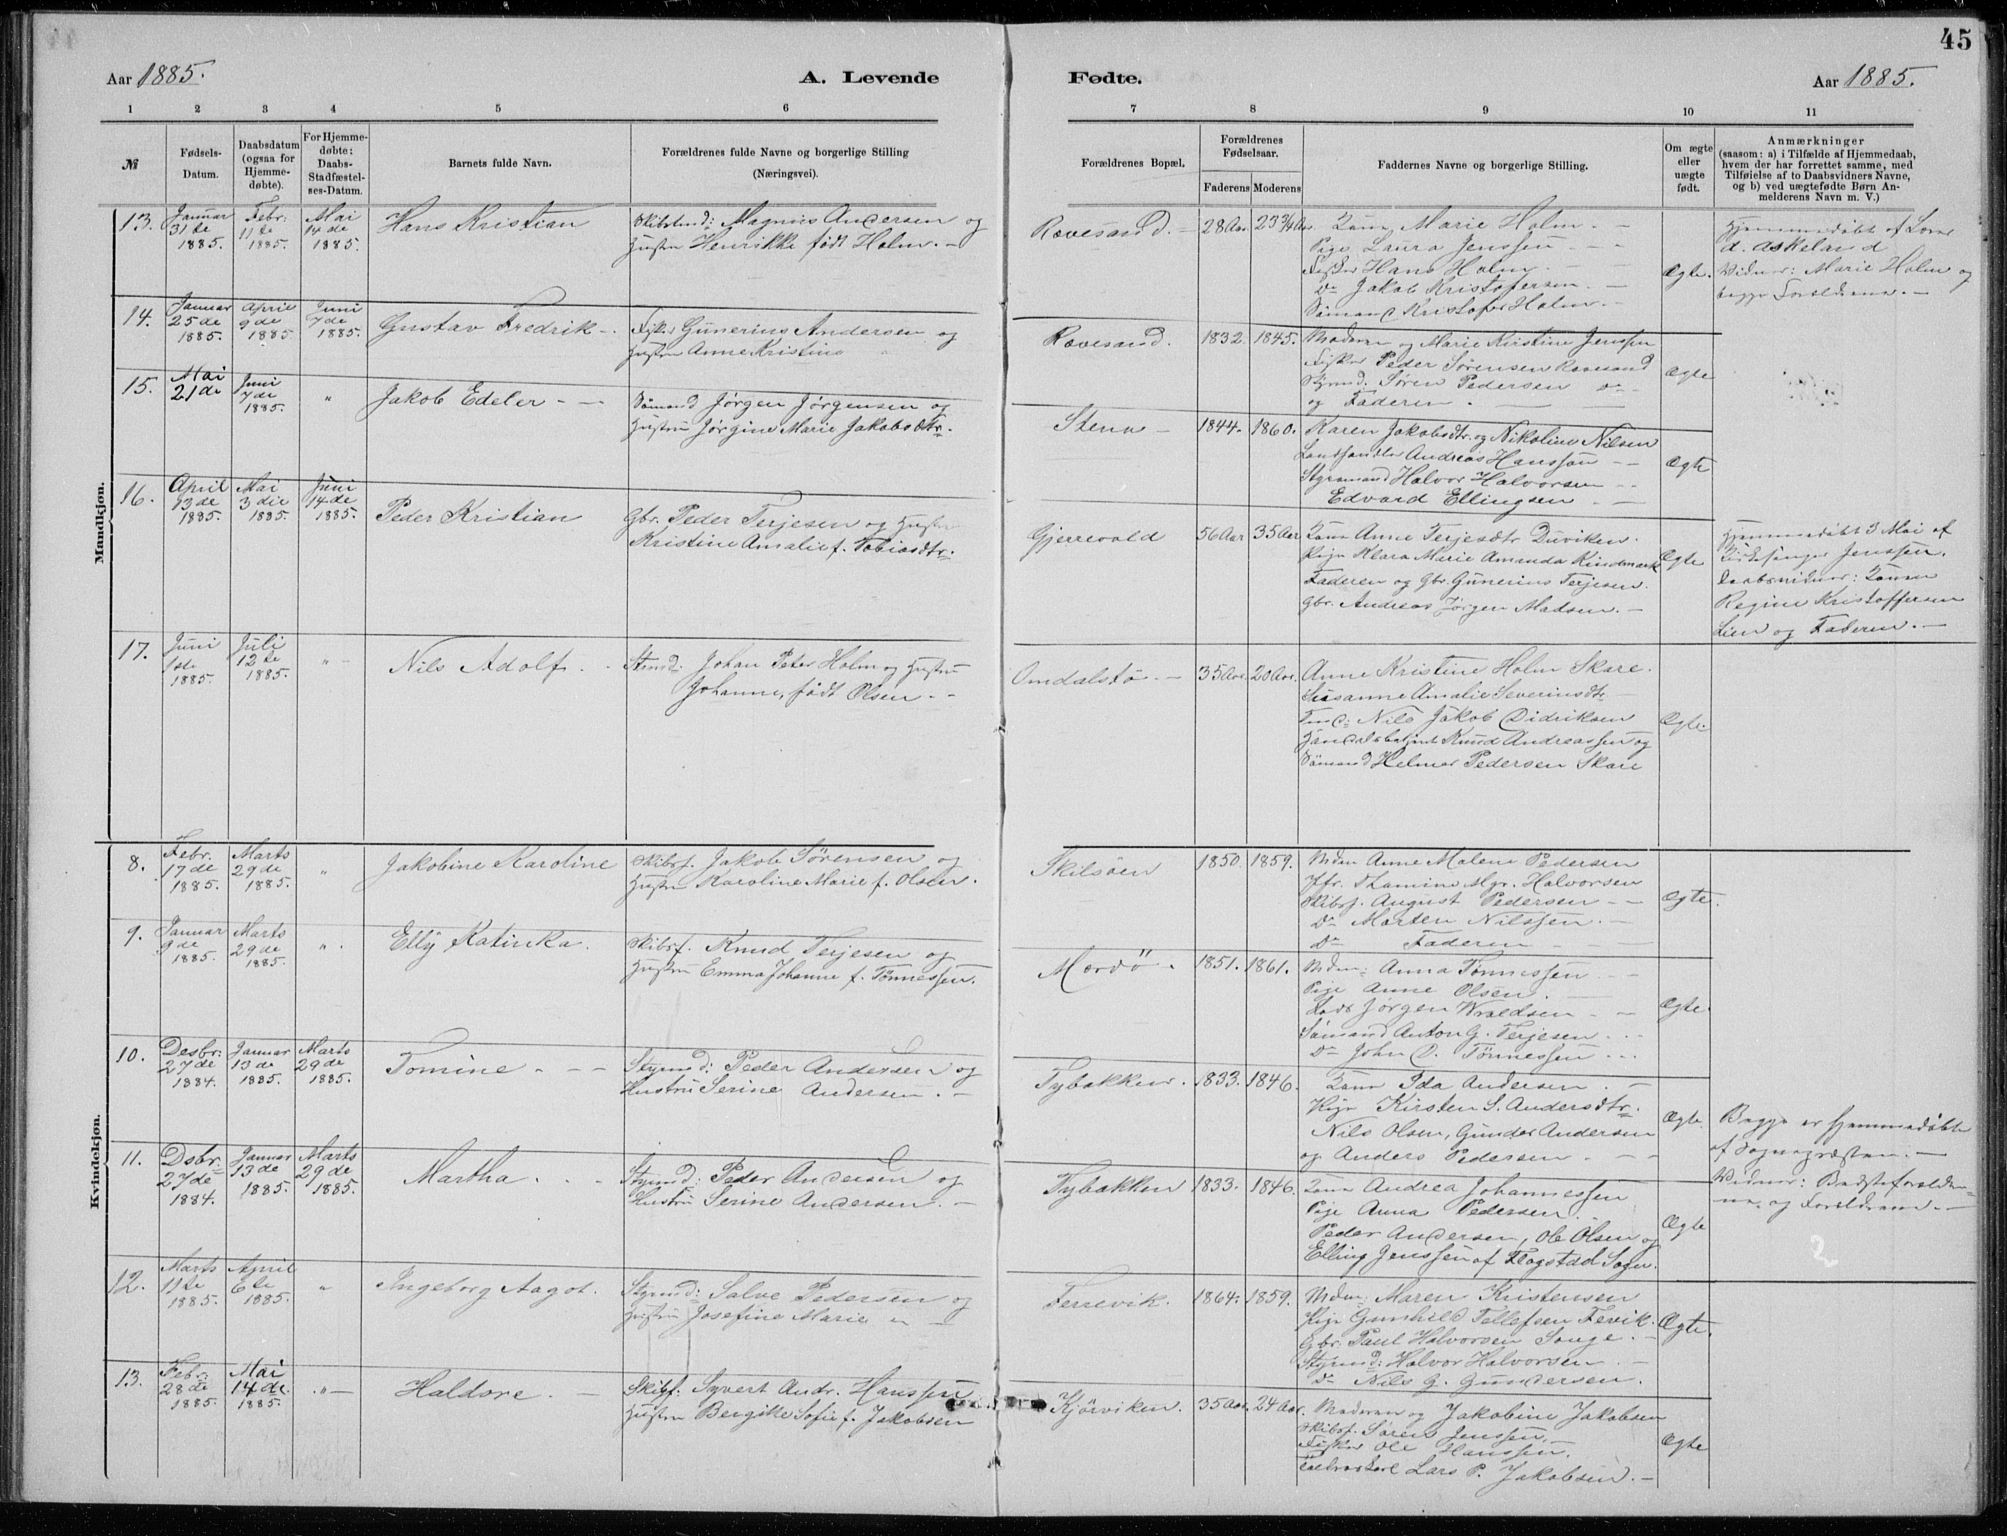 45
Aar 1885.
A. Levende
Fødte.
Aar 1885.
1 2 3 4 5 6 7 8 9 10 11
№
Fødsels-
Datum.
Daabsdatum
(ogsaa for
Hjemme-
døbte).
For Hjemme-
døbte:
Daabs-
Stadfæstel-
ses-Datum.
Barnets fulde Navn.
Forældrenes fulde Navne og borgerlige Stilling
(Næringsvei).
Forældrenes Bopæl.
Forældrenes
Fødselsaar.
Faderens Moderens
Faddernes Navne og borgerlige Stilling.
Om ægte
eller
uægte
født.
Anmærkninger
(saasom: a) i Tilfælde af Hjemmedaab,
hvem der har forrettet samme, med
Tilføielse af to Daabsvidners Navne,
og b) ved uægtefødte Børn An-
melderens Navn m. V.)
Mandkjøn.
13.
Januar
31te
1885.
Febr:
11te
1885.
Mai
14de
1885.
Hans Kristian
Magnus Andersen og
Hustru Henrikke født Holm. —
Rævesand. —
28 Aar 23 3/4 Aar
Kone Marie Holm. —
Pige Laura Jenssen
Fisker Hans Holm.
Do Jakob Kristofersen. —
Sømand Kristofer Holm. —
Ægte.
Hjemmedøbt af
d. Askeland
Vidner: Marie Holm og
begge Forældrene. —
14.
Januar
25de
1885.
April
9de
1885.
Juni
7de
1885.
Gustav Fredrik —
Fisker Gunerius Andersen og
Hustru Anne Kristine "
Rævesand.
1832. 1845.
Moderen og Marie Kristine Jenssen
Fisker Peder Sørensen Rævesand
Styrmd. Søren Pedersen do
og Faderen. —
Ægte
15.
Mai
21de
Juni
7de
1885.
"
Jakob Edeler — —
Sømand Jørgen Jørgensen og
Hustru Jørgine Marie Jakobsdtr.
Stene —
1844. 1860.
Karen Jakobsdtr. og Nikoline Nilsen
Andreas Hanssøn —
Styrmand Halvor Halvorsen
Edvard Ellingsen —
Ægte
16.
April
13de
1885.
Mai
3die
1885.
Juni
14de
1885.
Peder Kristian
Gbr. Peder Terjesen og Hustru
Kristine Amalie f. Tobiasdtr.
Gjerrevold
56 Aar 35 Aar
Kone Anne Terjesdtr Duviken.
Pige Klara Marie Amanda Kindmark
Faderen og Gbr. Gunerius Terjesen.
Gbr. Andreas Jørgen Madsen. —
Ægte
Hjemmedøbt 3 Mai af
Kirkesanger Jenssen.
Daabsvidner: Konen
Regine Kristoffersen
Lien og Faderen. —
17.
Juni
1ste
1885.
Juli
12te
1885.
" —
Nils Adolf. —
Johan Peter Holm og Hustru
Johanne, født Olsen. —
Omdalstø. —
35 Aar. 20 Aar.
Anne Kristine Holm Skare.
Susanne Amalie Severinsdtr —
Nils Jakob Didriksen
Knud Andreassen og
Sømand Helmer Pedersen Skare
Ægte.
Kvindekjøn.
8.
Febr.
17de
1885.
Marts
29de
1885.
"
Jakobine Karoline
Skibsf. Jakob Sørensen og
Hustru Karoline Marie f. Olsen.
Skilsøen
1850. 1859.
Mdm Anne Malene Pedersen
Jfr. Thomine Mgr. Halvorsen
Skibsf. August Pedersen —
Do Morten Nilssen. —
Do Faderen —
Ægte.
9.
Januar
9de
1885.
Marts
29de
1885.
"
Elly Katinka.
Skibsf. Knud Terjesen og
Hustru Emma Johanne f. Tønnessen.
Mærdø.
1851. 1861.
Mdm: Anna Tønnessen —
Pige Anne Olsen. —
Lods Jørgen Wroldsen —
Sømand Anton G. Terjesen
Do John D. Tønnessen
Ægte.
10.
Desbr:
27de
1884.
Januar
13de
1885.
Marts
29de
1885.
Tomine — —
Styrmd: Peder Andersen og
Hustru Serine Andersen. —
Tybakken.
1833. 1846.
Kone Ida Andersen. —
Pige Kirsten S. Andersdtr.
Nils Olsen, Gunder Andersen
og Anders Pedersen. —
Ægte
Begge er hjemmedøbte
af Sognepræsten. —
11.
Dsbr:
27de
1884.
Januar
13de
1885.
Marts
29de
1885.
Martha.
Styrmd: Peder Andersen og
Hustru Serine Andersen. —
Tybakken
1833. 1846.
Kone Andrea Johannessen
Pige Anna Pedersen.
Peder Andersen, Ole Olsen og
Elling Jenssen af Flogstad Sogn.
Ægte
Vidner: Bedsteforældre-
ne og Forældrene. —
2
12.
Marts
11te
1885.
April
6te
1885.
"
Ingeborg Aagot.
Styrmd: Salve Pedersen og
Hustru Josefine Marie " —
Ferrevik.
1864. 1859.
Mdm: Maren Kristensen
Pige Gunhild Tellefsen Fevik.
Gbr. Paul Halvorsen Songe. —
Styrmd: Halvor Halvorsen. —
Do Nils G. Gundersen.
Ægte.
13.
Febr:
28de
1885.
Mai
14de
1885.
" —
Haldore. —
Skibsf: Syvert Andr. Hanssen
Hustru Bergitte Sofie f. Jakobsen
Kjørviken.
35 Aar. 24 Aar.
Moderen og Jakobine Jakobsen
Skibsf. Søren Jenssen.
Fisker Ole Hanssen.
Lars P. Jakobsen. —
Ægte